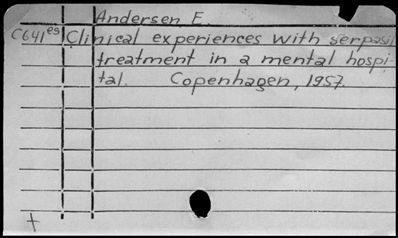 Andersen E.
C641es Clinical experiences with serpasil
treatment in a mental hospi-
tal. Copenhagen, 1957.